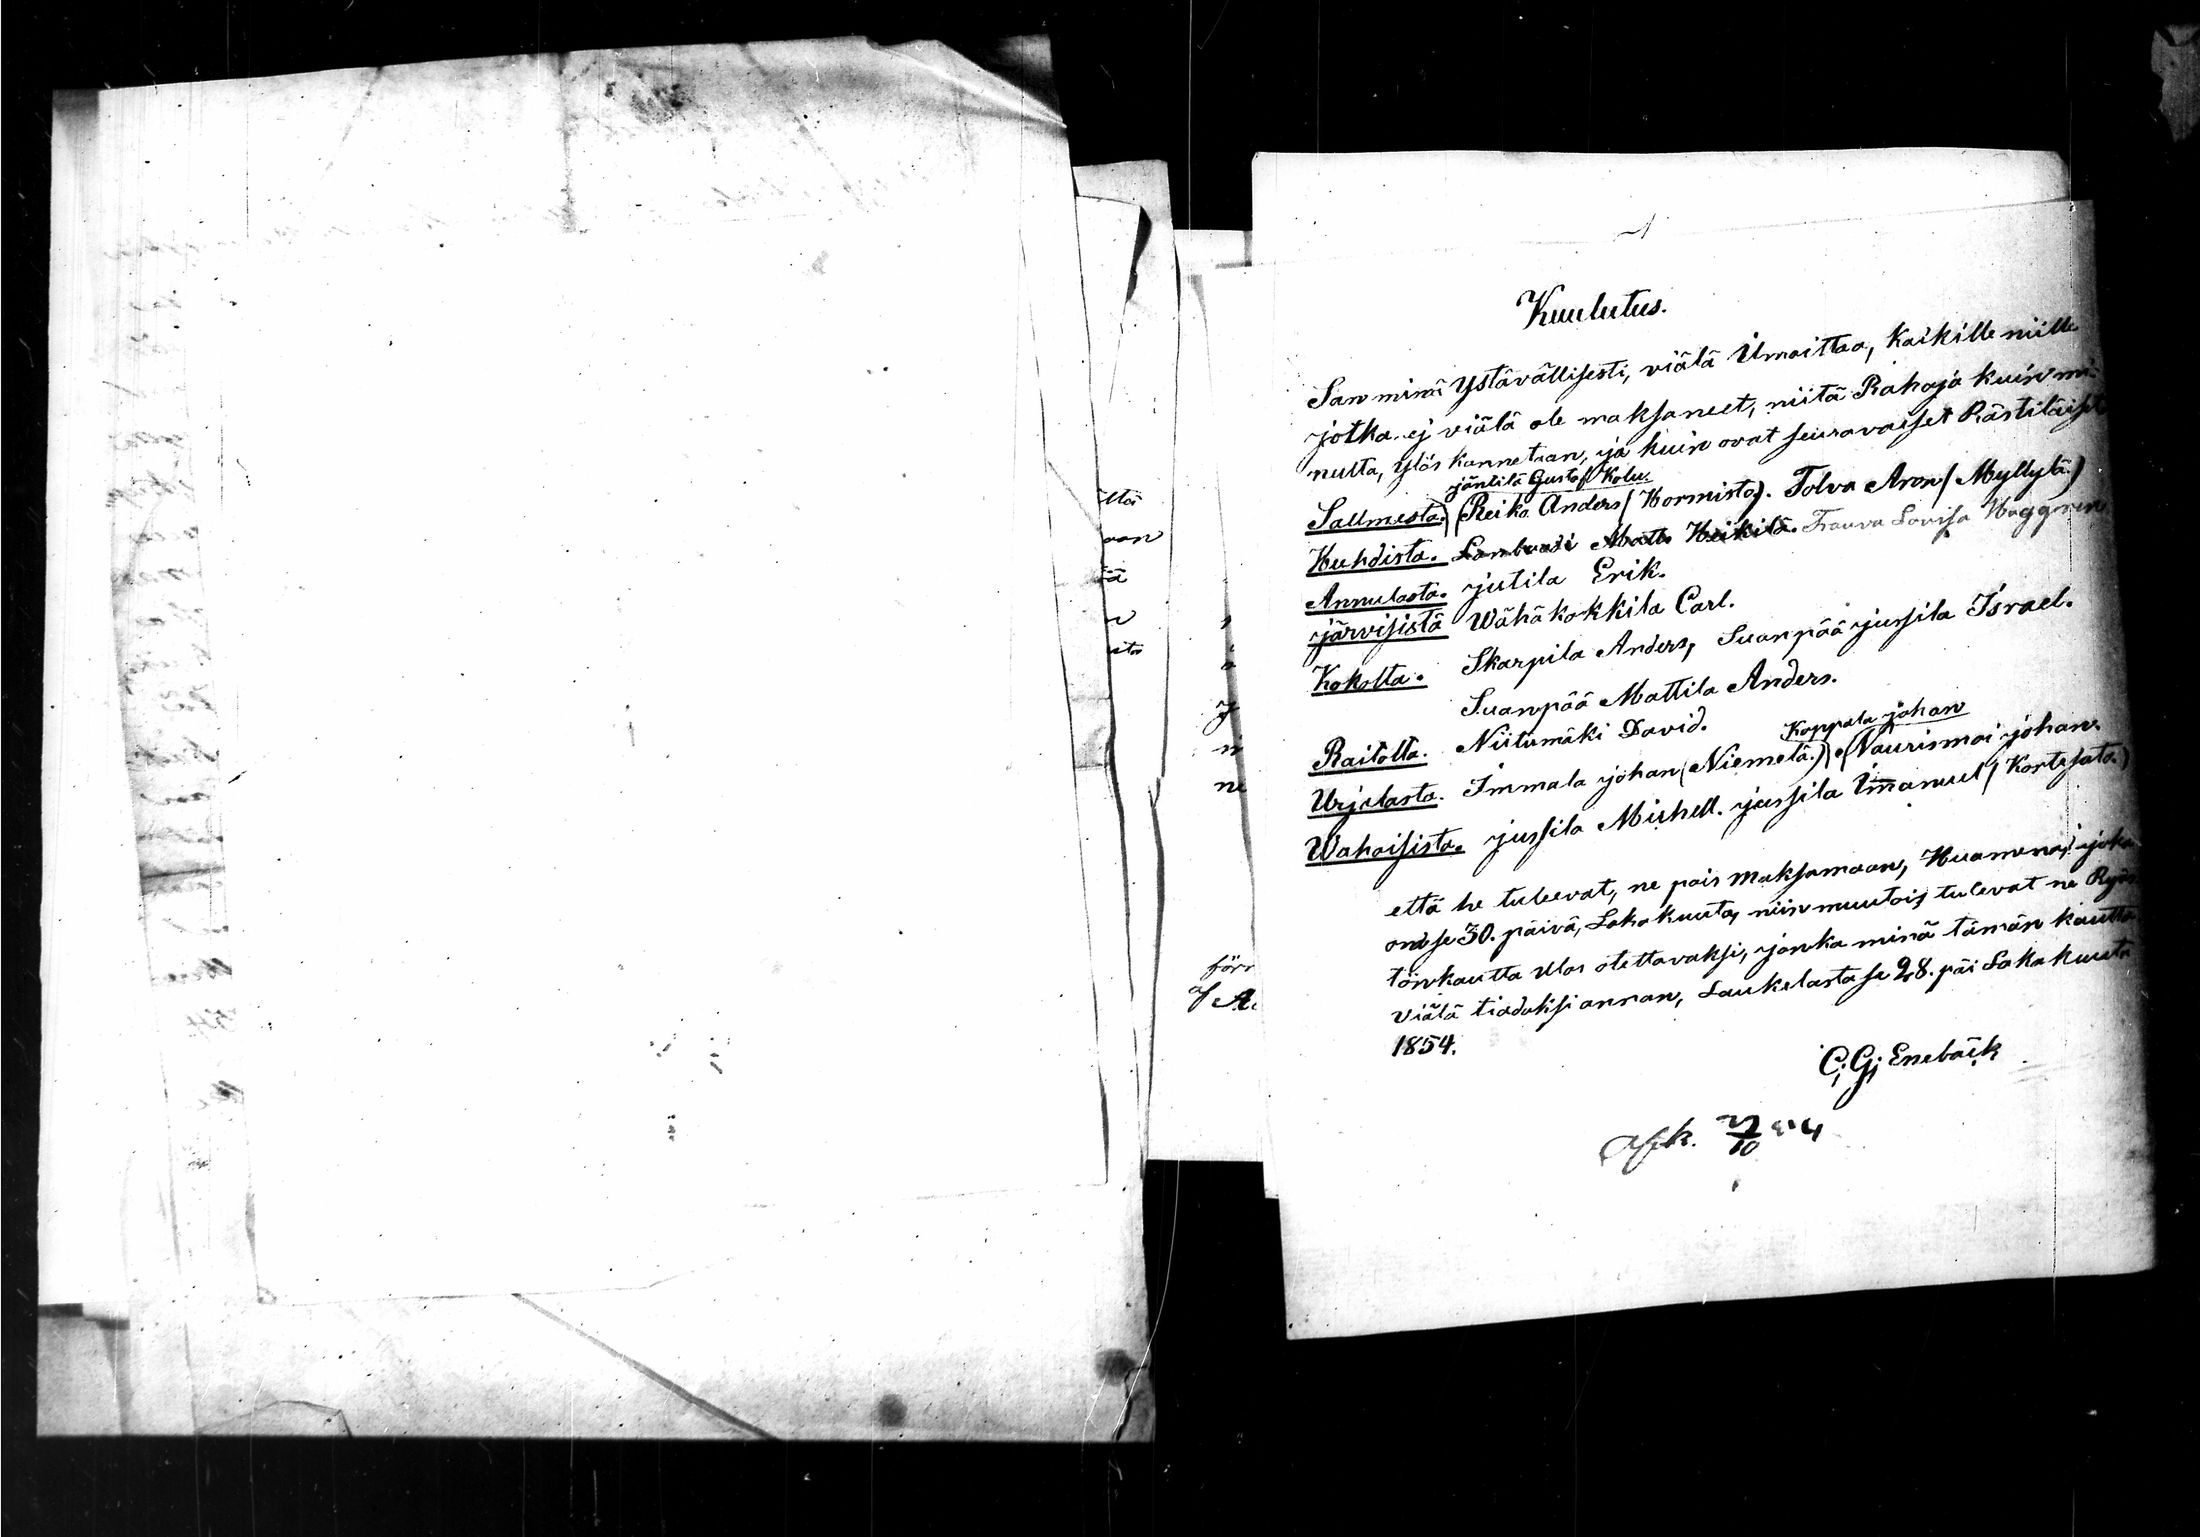 Kuulutus.
San minä ystävällisesti, viälä ilmoittaa, Kaikille niille
jotka ej viälä ole maksaneet, niitä Rahoja kuin mi-
nulta, ylös kannetaan, ja kuin ovat seuravaiset Rästiläiset
jäntilä Gustaf Kolu.
Sallmesta.) (Reiko Anders (Kormisto). Tolva Aron (Myllylä.)
Huhdista. Lambuadi Matts Heikilä. Frouva Lovisa Haggren
Annulasta. jutila Erik.
järvisistä Wähäkokkila Carl.
Kokolta. Skarpila Anders, Suanpää jussila Israel.
Suanpää Mattila Anders.
Raitolta. Niitumäki David.
Koppala johan
Urjalasta. Immala johan (Niemelä.) (Naurismoi johan.
Wahaisista. jussila Michell. jussila Imanuel (Kortesato.)
että he tuleevat, ne pois maksamaan, Huamena, joka
on se 30. päivä, Lokakuuta, niin muutoin tulevat ne Ryös
tönkautta ulos otettavaksi, jonka minä tämän kautta
viälä tiadoksi annan, Laukelasta se 28. päi Lokakuuta
1854.
C; G; Enebäck